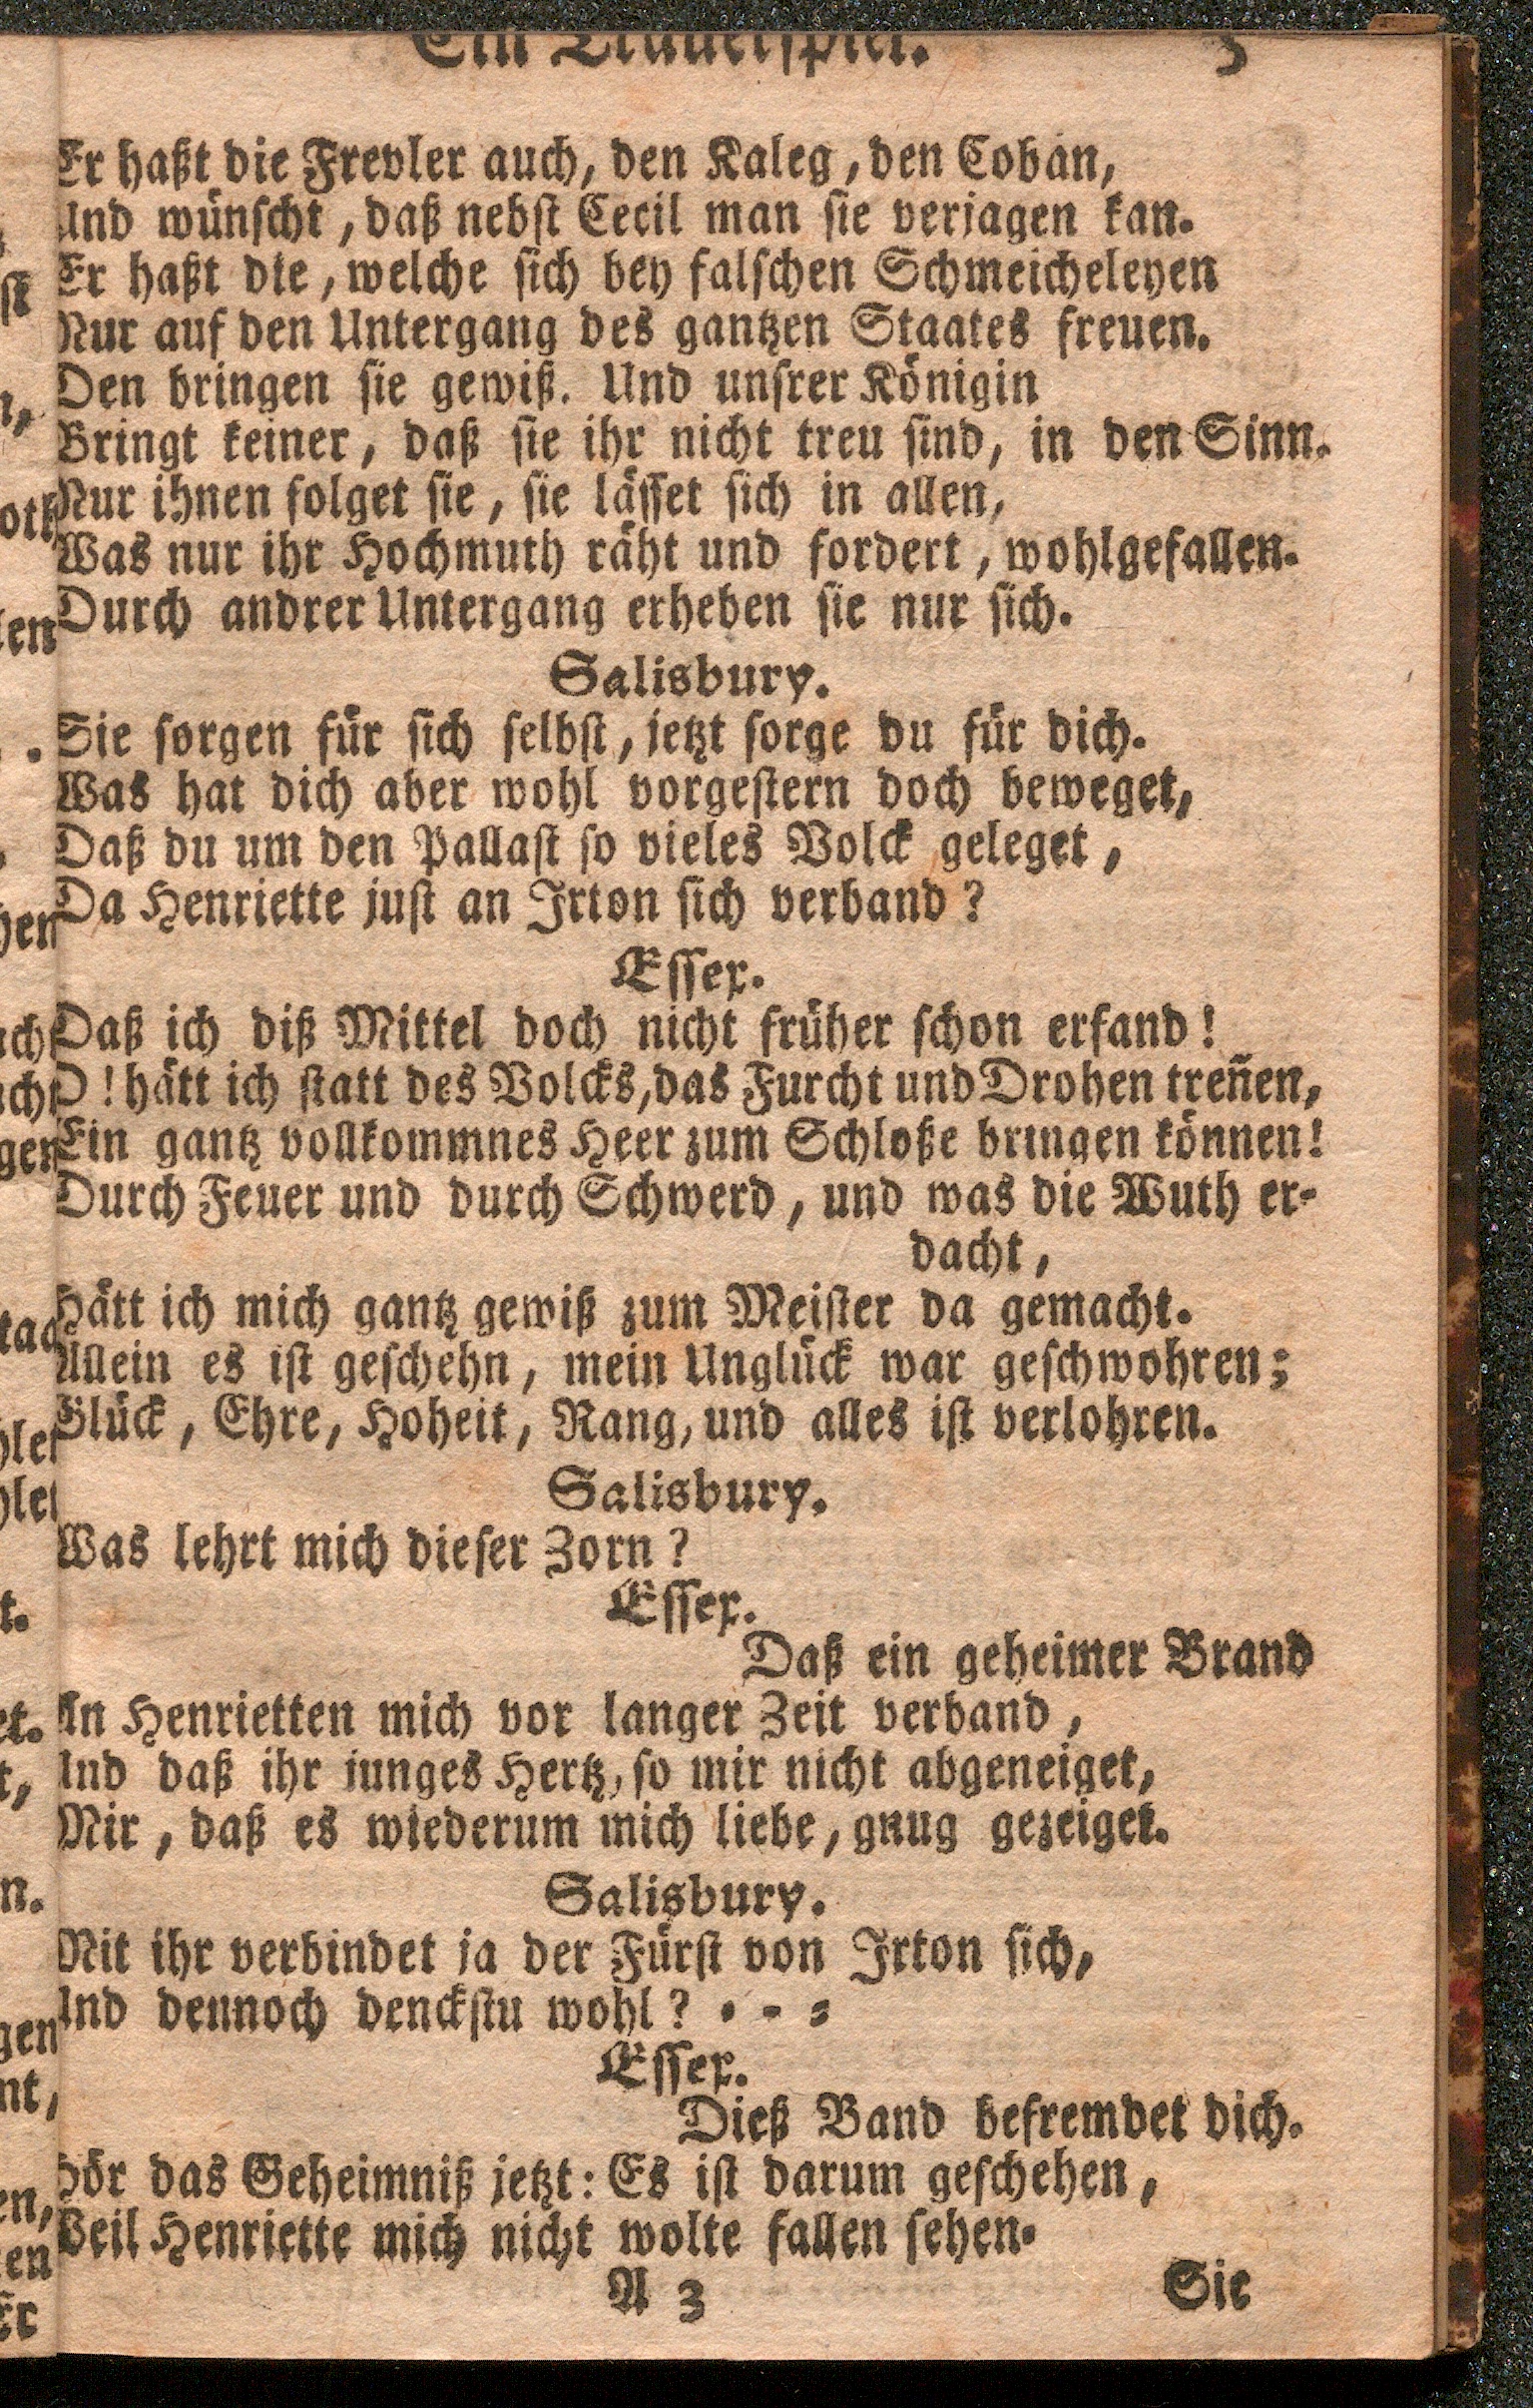 Ein Trauerspiel.
Er haßt die Frevler auch, den Kaleg, den Coban,
Und wünscht, daß nebst Cecil man sie verjagen kan.
Er haßt die, welche sich bey falschen Schmeicheleyen
Nur auf den Untergang des gantzen Staates freuen.
Den bringen sie gewiß. Und unsrer Königin
Bringt keiner, daß sie ihr nicht treu sind, in den Sinn.
Nur ihnen folget sie, sie lässet sich in allen,
Was nur ihr Hochmuth räht und fordert, wohlgefallen.
Durch andrer Untergang erheben sie nur sich.
Salisbury.
Sie sorgen für sich selbst, jetzt sorge du für dich.
Was hat dich aber wohl vorgestern doch beweget,
Daß du um den Pallast so vieles Volck geleget,
Da Henriette just an Irton sich verband?
Essex.
Daß ich diß Mittel doch nicht früher schon erfand!
O! hätt ich statt des Volcks, das Furcht und Drohen treñen,
Ein gantz vollkommnes Heer zum Schloße bringen können!
Durch Feuer und durch Schwerd, und was die Wuth er-
dacht,
Hätt ich mich gantz gewiß zum Meister da gemacht.
Allein es ist geschehn, mein Unglück war geschwohren;
Glück, Ehre, Hoheit, Rang, und alles ist verlohren.
Salisbury.
Was lehrt mich dieser Zorn?
Essex.
Daß ein geheimer Brand
An Henrietten mich vor langer Zeit verband,
Und daß ihr junges Hertz, so mir nicht abgeneiget,
Mir, daß es wiederum mich liebe, gnug gezeiget.
Salisbury.
Mit ihr verbindet ja der Fürst von Irton sich,
Und dennoch denckstu wohl? - - -
Essex.
Dieß Band befremdet dich.
Hör das Geheimniß jetzt: Es ist darum geschehen,
Weil Henriette mich nicht wolte fallen sehen.
A 3 Sie